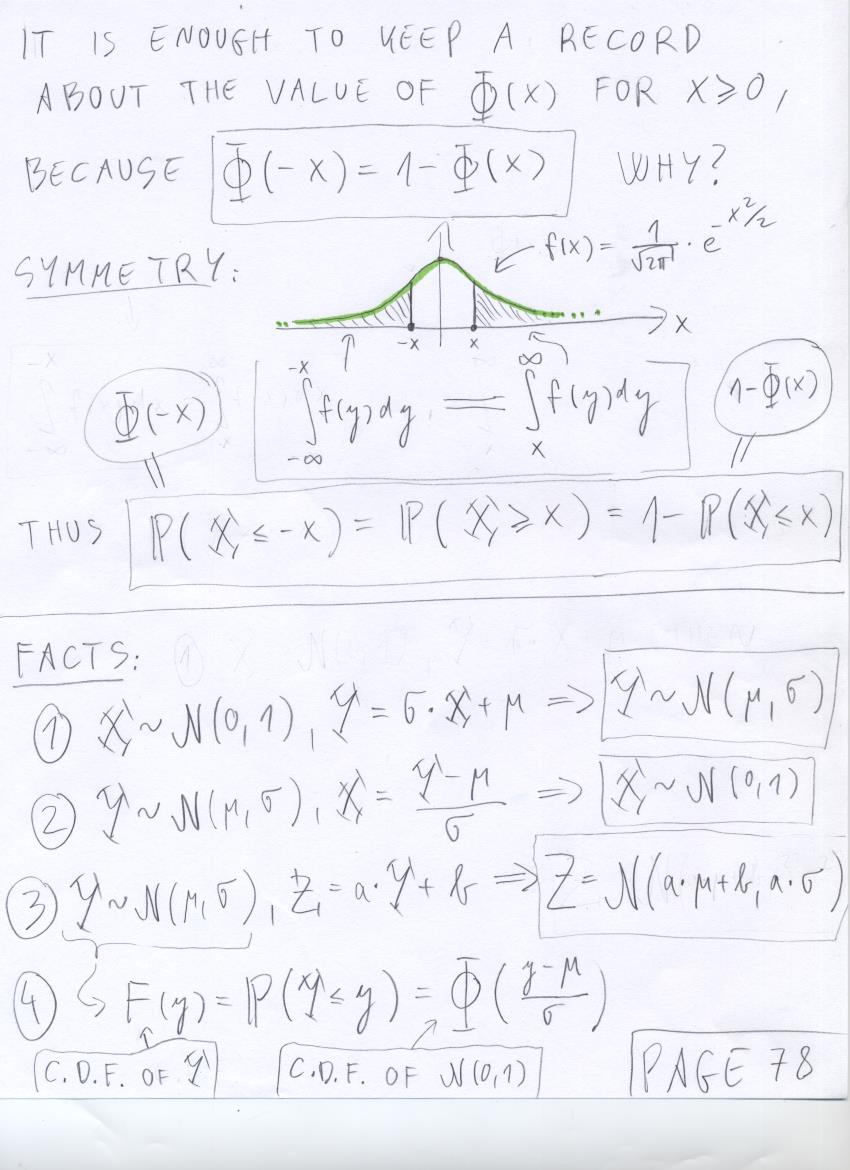 IT IS ENOUGH TO KEEP A RECORD
ABOUT THE VALUE OF Φ(x) FOR x⩾0,
BECAUSE Φ(-x) = 1-Φ(x) WHY?
SYMMETRY: f(x) = 1/√2π · e^-x²/2
-x x x
Φ(-x) ∫_{-∞}^{-x} f(y)dy = ∫_x^∞ f(y)dy 1-Φ(x)
THUS ℙ(X ≤ -x) = ℙ(X ⩾ x) = 1- ℙ(X ≤ x)
FACTS:
① X ~ N(0,1), Y = σ·X + μ => Y ~ N(μ,σ)
② Y ~ N(μ,σ), X = (Y-μ)/σ => X ~ N(0,1)
③ Y ~ N(μ,σ), Z = a·Y + b => Z = N(a·μ+b, a·σ)
④ F(y) = ℙ(Y ≤ y) = Φ((y-μ)/σ)
C.D.F. OF Y C.D.F. OF N(0,1) PAGE 78